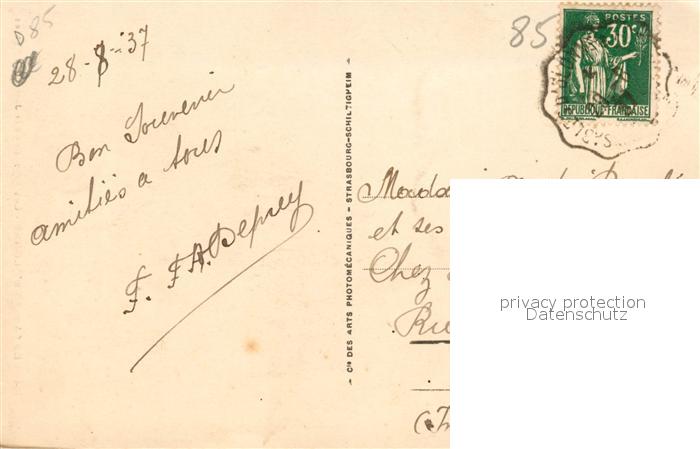 D 85
85
28-8-37
POSTES
30c
REPUBLIQUE FRANÇAISE
Bon Souvenir
amitiés a tous
F. FA. Deprey
Cie DES ARTS PHOTOMÉCANIQUES - STRASBOURG-SCHILTIGHEIM
Mada
et ses
Chez
Rue
privacy protection
Datenschutz